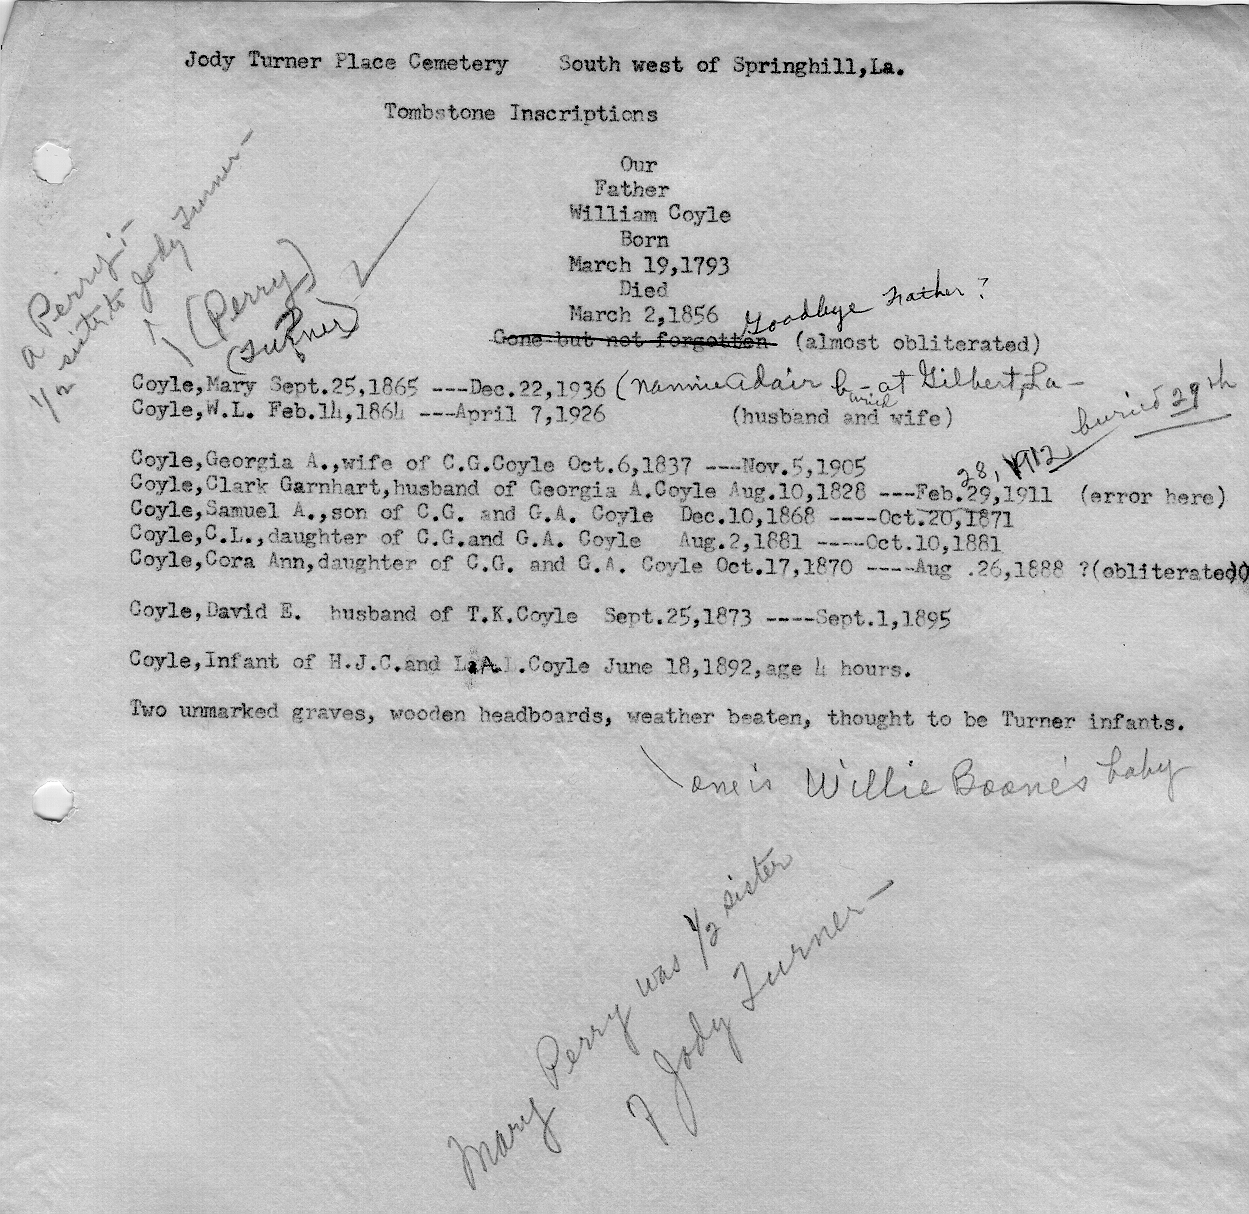 Jody Turner Place Cemetery South west of Springhill,La.
Tombstone Inscriptions
Our
Father
William Coyle
Born
March 19,1793
Died
March 2,1856
Goodbye Father?
Gone but not forgotten (almost obliterated)
a Perry;-
1/2 sister to Jody Turner-
(Perry)
(Turner)
Coyle,Mary Sept.25,1865 ---Dec.22,1936 (Nannie Adair b- at Gilbert, La-
buried
Coyle,W.L. Feb.14,1864 ---April 7,1926 (husband and wife)
Coyle,Georgia A.,wife of C.G.Coyle Oct.6,1837 ---Nov.5,1905
28, 1912, buried 29th
Coyle,Clark Garnhart,husband of Georgia A.Coyle Aug.10,1828 ---Feb.29,1911 (error here)
Coyle,Samuel A.,son of C.G. and G.A. Coyle Dec.10,1868 ----Oct.20,1871
Coyle,C.L.,daughter of C.G.and G.A. Coyle Aug.2,1881 ----Oct.10,1881
Coyle,Cora Ann,daughter of C.G. and G.A. Coyle Oct.17,1870 ----Aug .26,1888 ?(obliterated)
Coyle,David E. husband of T.K.Coyle Sept.25,1873 ----Sept.1,1895
Coyle,Infant of H.J.C.and L.A.L.Coyle June 18,1892,age 4 hours.
Two unmarked graves, wooden headboards, weather beaten, thought to be Turner infants.
one is Willie Boone's baby
Mary Perry was 1/2 sister
? Jody Turner-